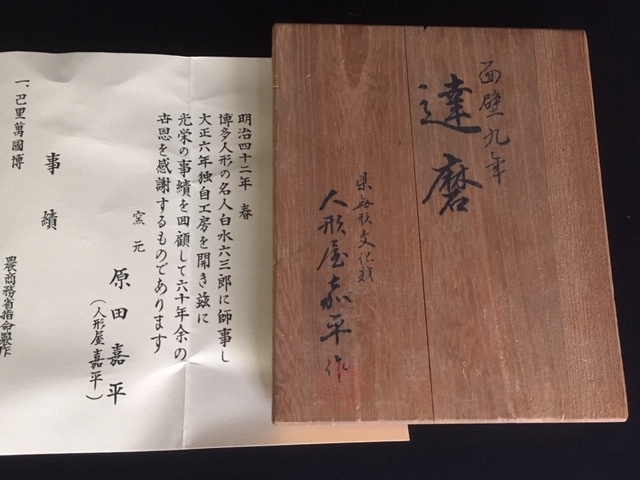 面壁九年
達磨
県無形文化財
人形屋嘉平作
明治四十二年 春
博多人形の名人白水六三郎に師事し
大正六年独自工房を開き玆に
光栄の事績を回顧して六十年余の
古恩を感謝するものであります
窯元 原田嘉平
(人形屋嘉平)
事績
一、巴里萬國博 農商務省指命製作